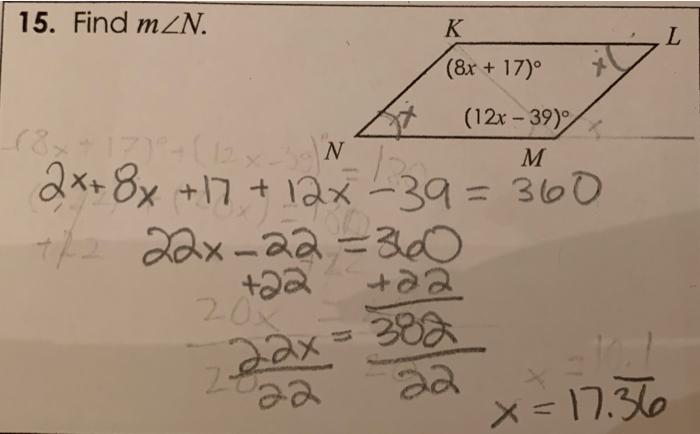 15. Find m∠N.
K
L
(8x + 17)°
x
x
(12x – 39)°
x
N
M
2x+8x+17+12x-39=360
22x-22=360
+22 +22
22x = 382
22 22
x=17.3̅6̅